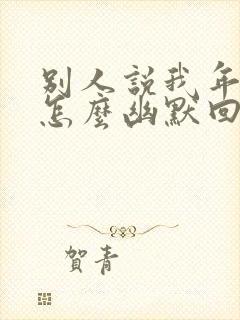 別人說我年
怎麼幽默回
賀青